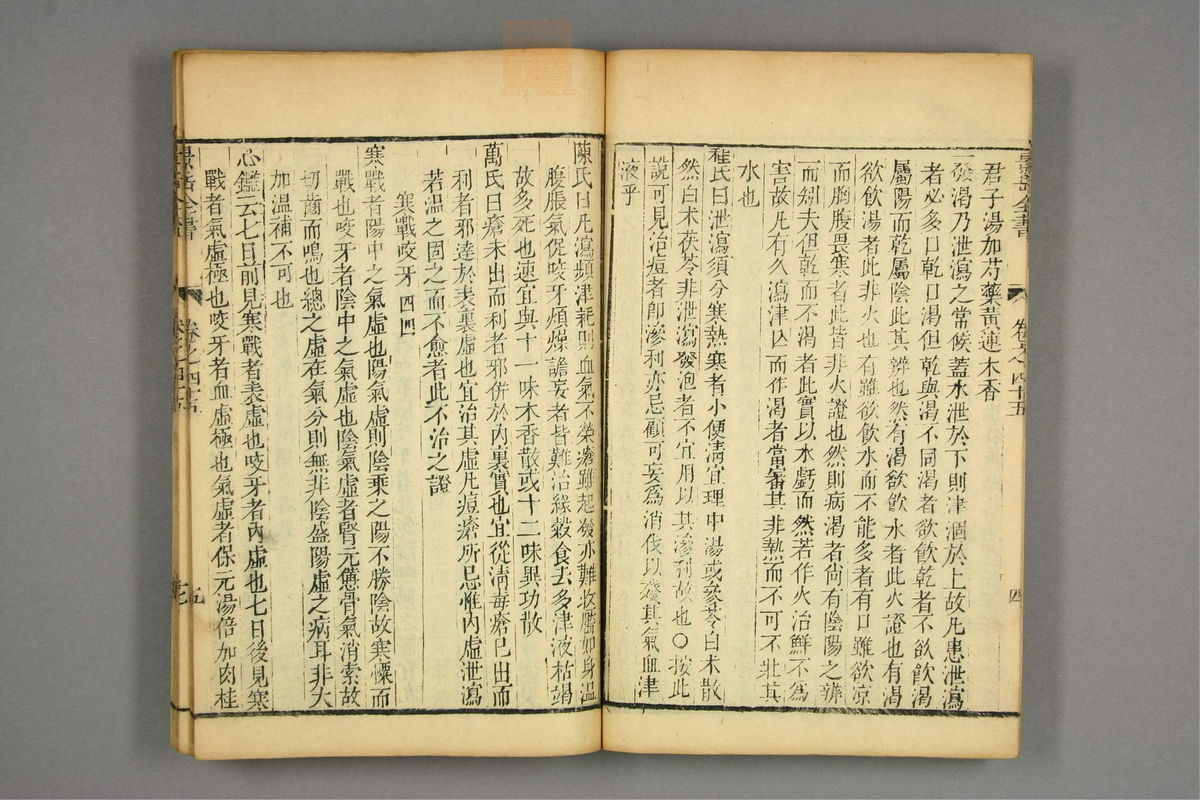 君子湯加芍藥黃連木香
一發渴乃泄瀉之常候蓋水泄於下則津涸於上故凡患泄瀉
者必多口乾口渴但乾與渴不同渴者欲飲乾者不欲飲渴
屬陽而乾屬陰此其辨也然有渴欲飲水者此火證也有渴
欲飲湯者此非火也有雖欲飲水而不能多者有口雖欲凉
而胸腹畏寒者此皆非火證也然則病渴者尚有陰陽之辨
而矧夫但乾而不渴者此實以水虧而然若作火治鮮不為
害故凡有久瀉津亡而作渴者當審其非熱而不可不壯其
水也
程氏曰泄瀉須分寒熱寒者小便清宜理中湯或參苓白朮散
然白朮茯苓非泄瀉發泡者不宜用以其滲利故也○按此
說可見治痘者卽滲利亦忌顧可妄為消伐以殘其氣血津
液乎
卷之四十五
四
陳氏曰凡瀉頻津耗則血氣不榮瘡雖起發亦難收靨如身溫
腹脹氣促咬牙煩燥譫妄者皆難治緣穀食去多津液枯竭
故多死也速宜與十一味木香散或十二味異功散
萬氏曰瘡未出而利者邪併於內裏實也宜從清毒瘡已出而
利者邪達於表裏虛也宜治其虛凡痘瘡所忌惟內虛泄瀉
若溫之固之而不愈者此不治之證
寒戰咬牙 四四
寒戰者陽中之氣虛也陽氣虛則陰乘之陽不勝陰故寒慄而
戰也咬牙者陰中之氣虛也陰氣虛者腎元憊骨氣消索故
切齒而鳴也總之虛在氣分則無非陰盛陽虛之病耳非大
加溫補不可也
心鑑云七日前見寒戰者表虛也咬牙者內虛也七日後見寒
戰者氣虛極也咬牙者血虛極也氣虛者保元湯倍加肉桂
景岳全書
卷之四十五
五